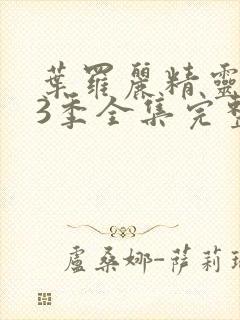 葉羅麗精靈
3季全集完整
盧桑娜-薩莉瑞